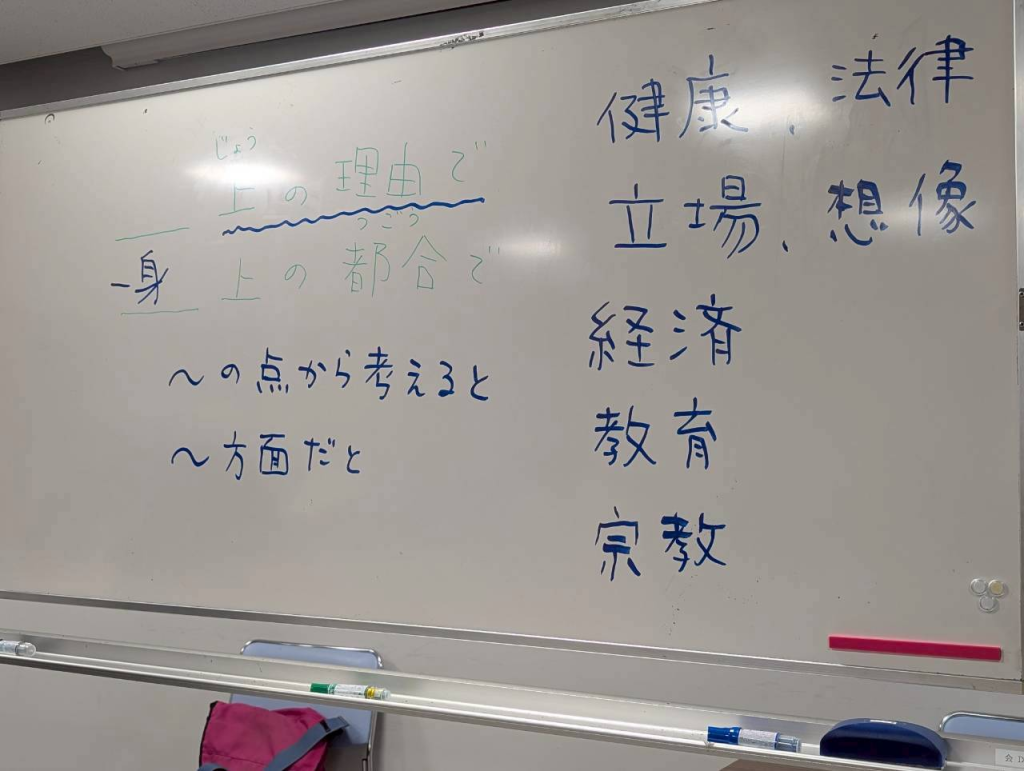 じょう
上の理由で
つごう
一身上の都合で
～の点から考えると
～方面だと
健康、法律
立場、想像
経済
教育
宗教